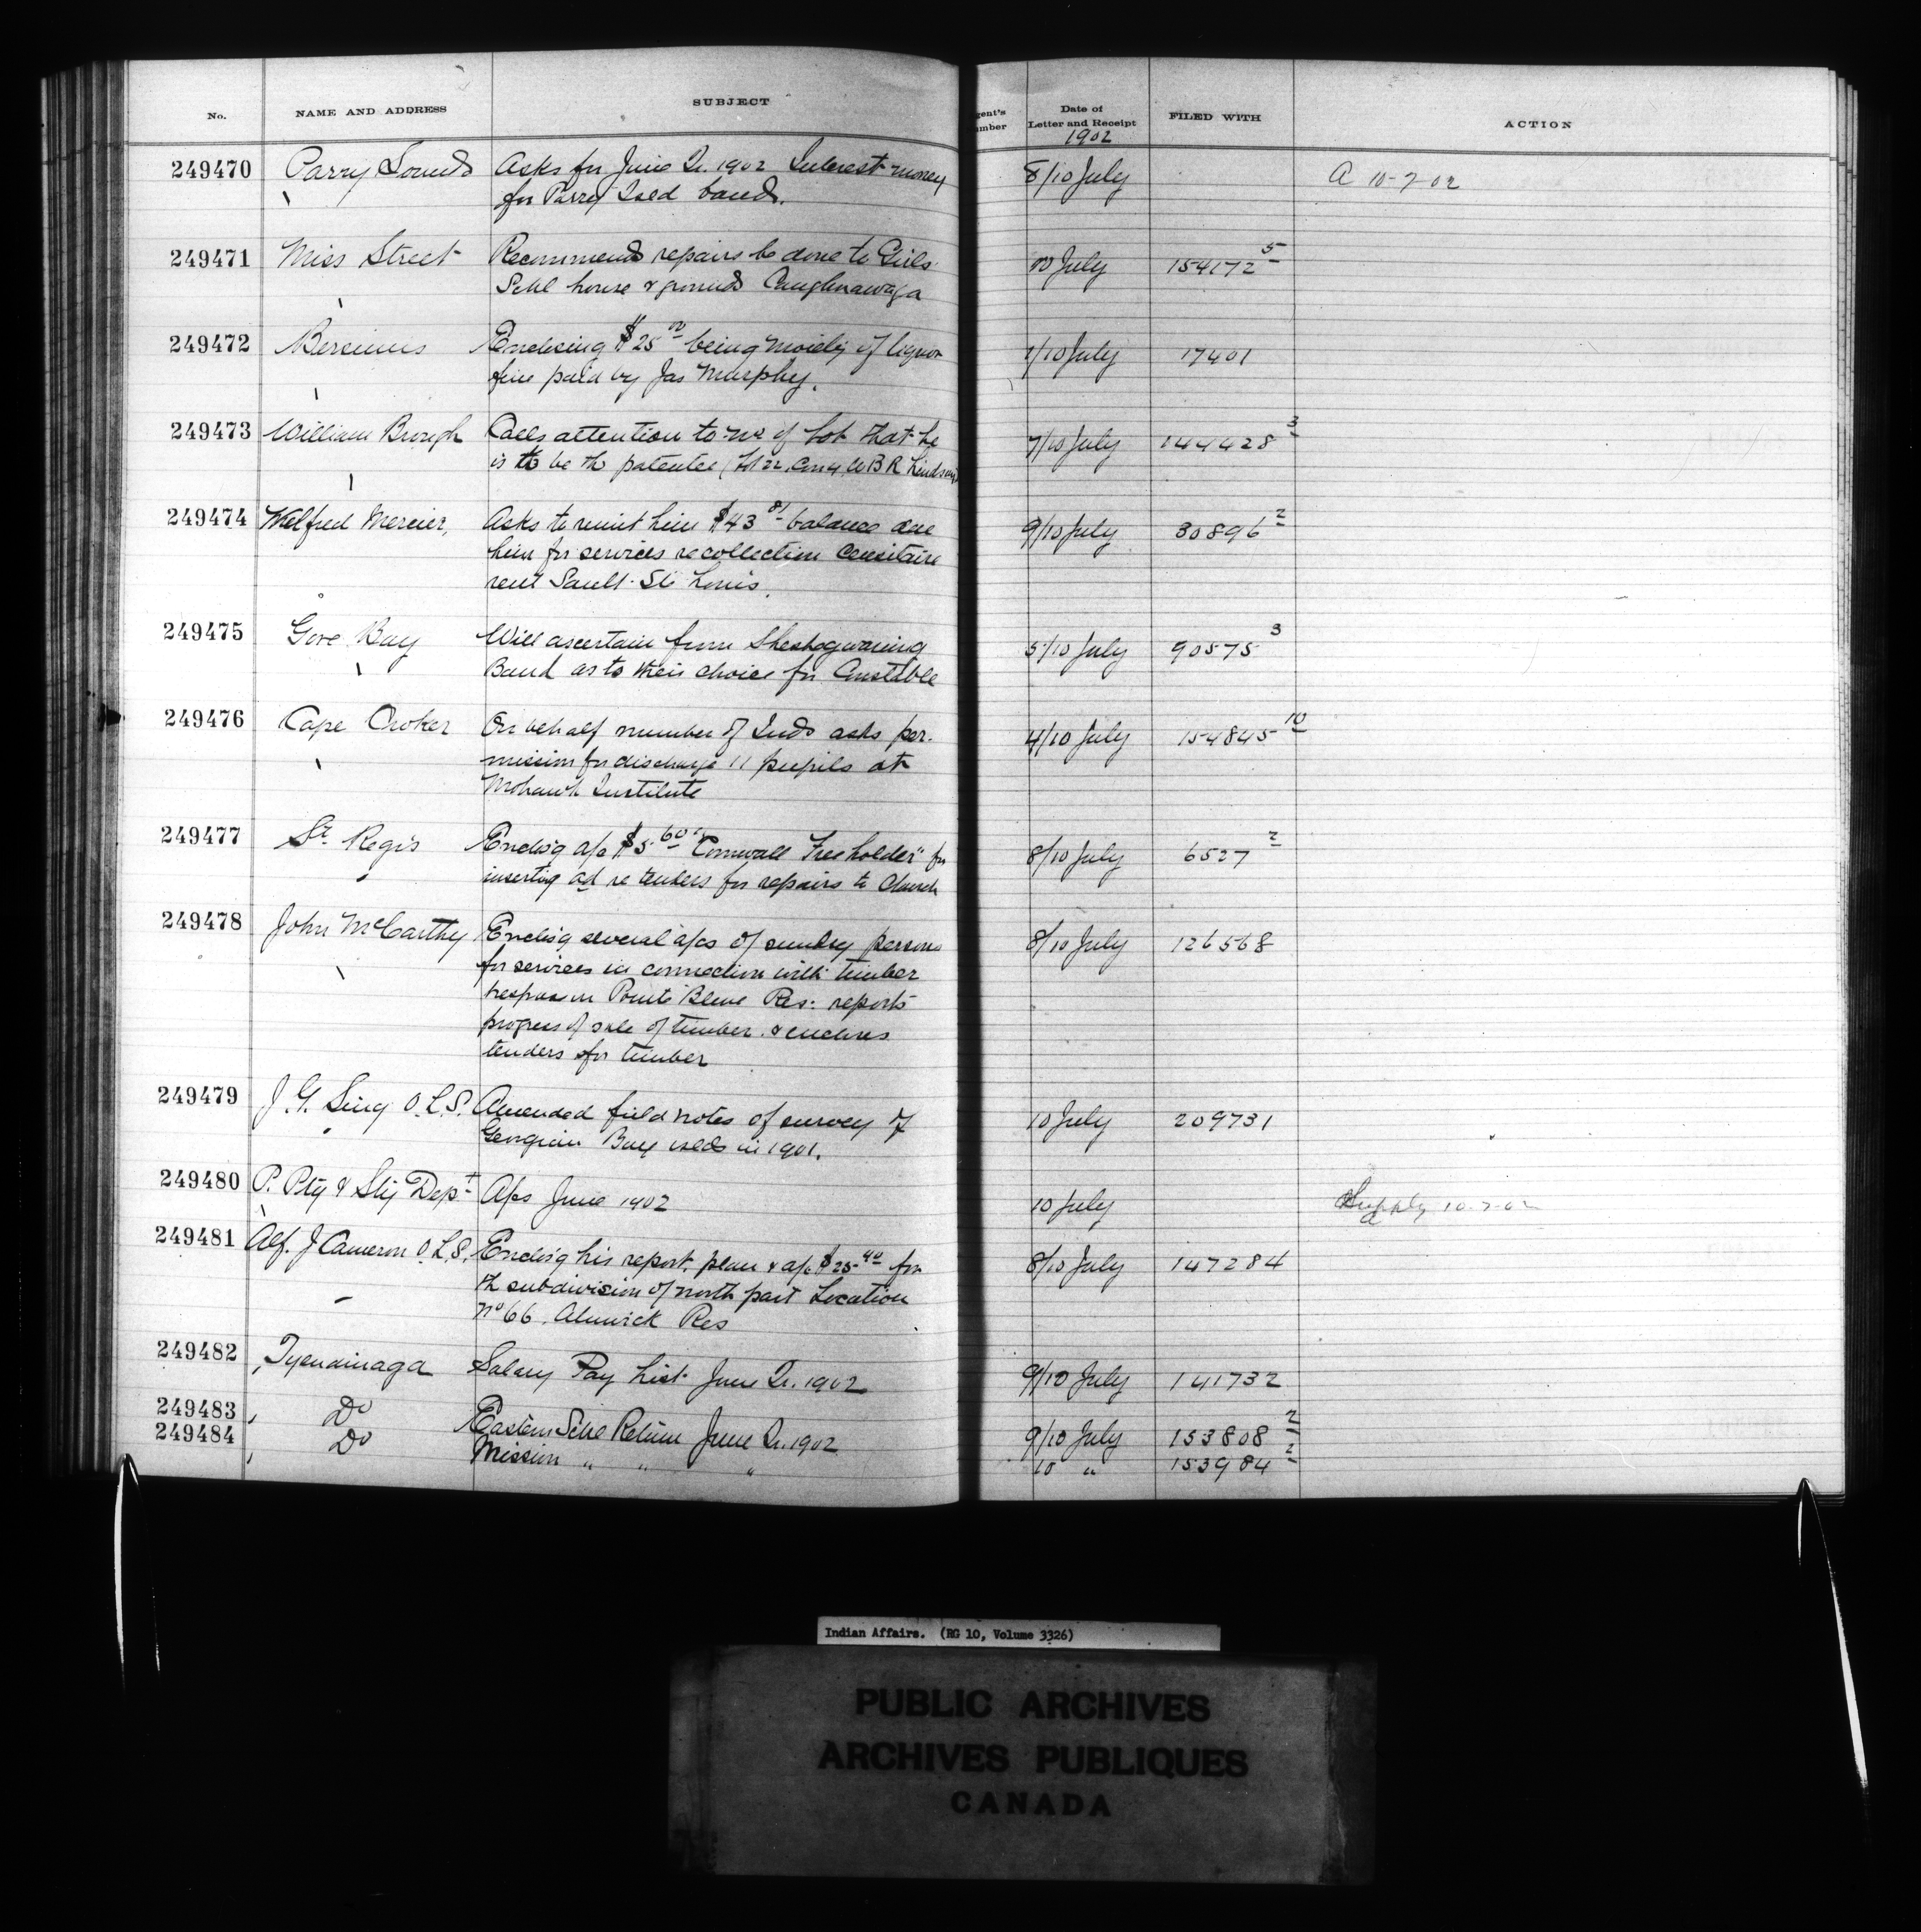 No. NAME AND ADDRESS SUBJECT gent's umber Date of Letter and Receipt FILED WITH ACTION
1902
249470 Parry Sound Asks for June Qr. 1902 Interest money 8/10 July A 10-7-02
for Parry Isld band.
249471 Miss Street Recommends repairs be done to Girls 10 July 154172 5
Schl house & grounds Caughnawaga
249472 Bersimis Enclosing $25 00 being moiety of liquor 7/10 July 17401
fine paid by Jas Murphy.
249473 William Brough Calls attention to No of lot that he 7/10 July 144428 3
is to be the patentee (Lot 22, Con 4, W B R Lindsay
249474 Wilfred Mercier, Asks to remit him $43 81 balance due 9/10 July 30896 2
him for services re collection Censitaire
rent Sault St Louis.
249475 Gore Bay Will ascertain from Sheshegwaning 5/10 July 90575 3
Band as to their choice for Constable
249476 Cape Croker On behalf number of Inds asks per- 4/10 July 154845 10
mission for discharge 11 pupils at
Mohawk Institute
249477 St. Regis Enclos'g a/c $5 60 "Cornwall Freeholder" for 8/10 July 6527 2
inserting ad re tenders for repairs to Church
249478 John McCarthy Enclos'g several a/cs of sundry persons 8/10 July 126568
for services in connection with timber
trespass on Pointe Bleue Res: reports
progress of sale of timber & encloses
tenders for timber
249479 J. G. Sing O.L.S. Amended field notes of survey of 10 July 209731
Georgian Bay islds in 1901.
249480 P. Ptg & Sty Dept A/cs June 1902 10 July Supply 10-7-02
a
249481 Alf. J Cameron O.L.S. Enclos'g his report, plan & a/c $25 40 for 8/10 July 147284
the subdivision of north part Location
No 66. Alnwick Res
249482 Tyendinaga Salary Pay List June Qr. 1902 9/10 July 141732
249483 Do Eastern Schl Return June Qr. 1902 9/10 July 153808 2
249484 Do Mission " " " 10 " 153984 2
Indian Affairs. (RG 10, Volume 3326)
PUBLIC ARCHIVES
ARCHIVES PUBLIQUES
CANADA